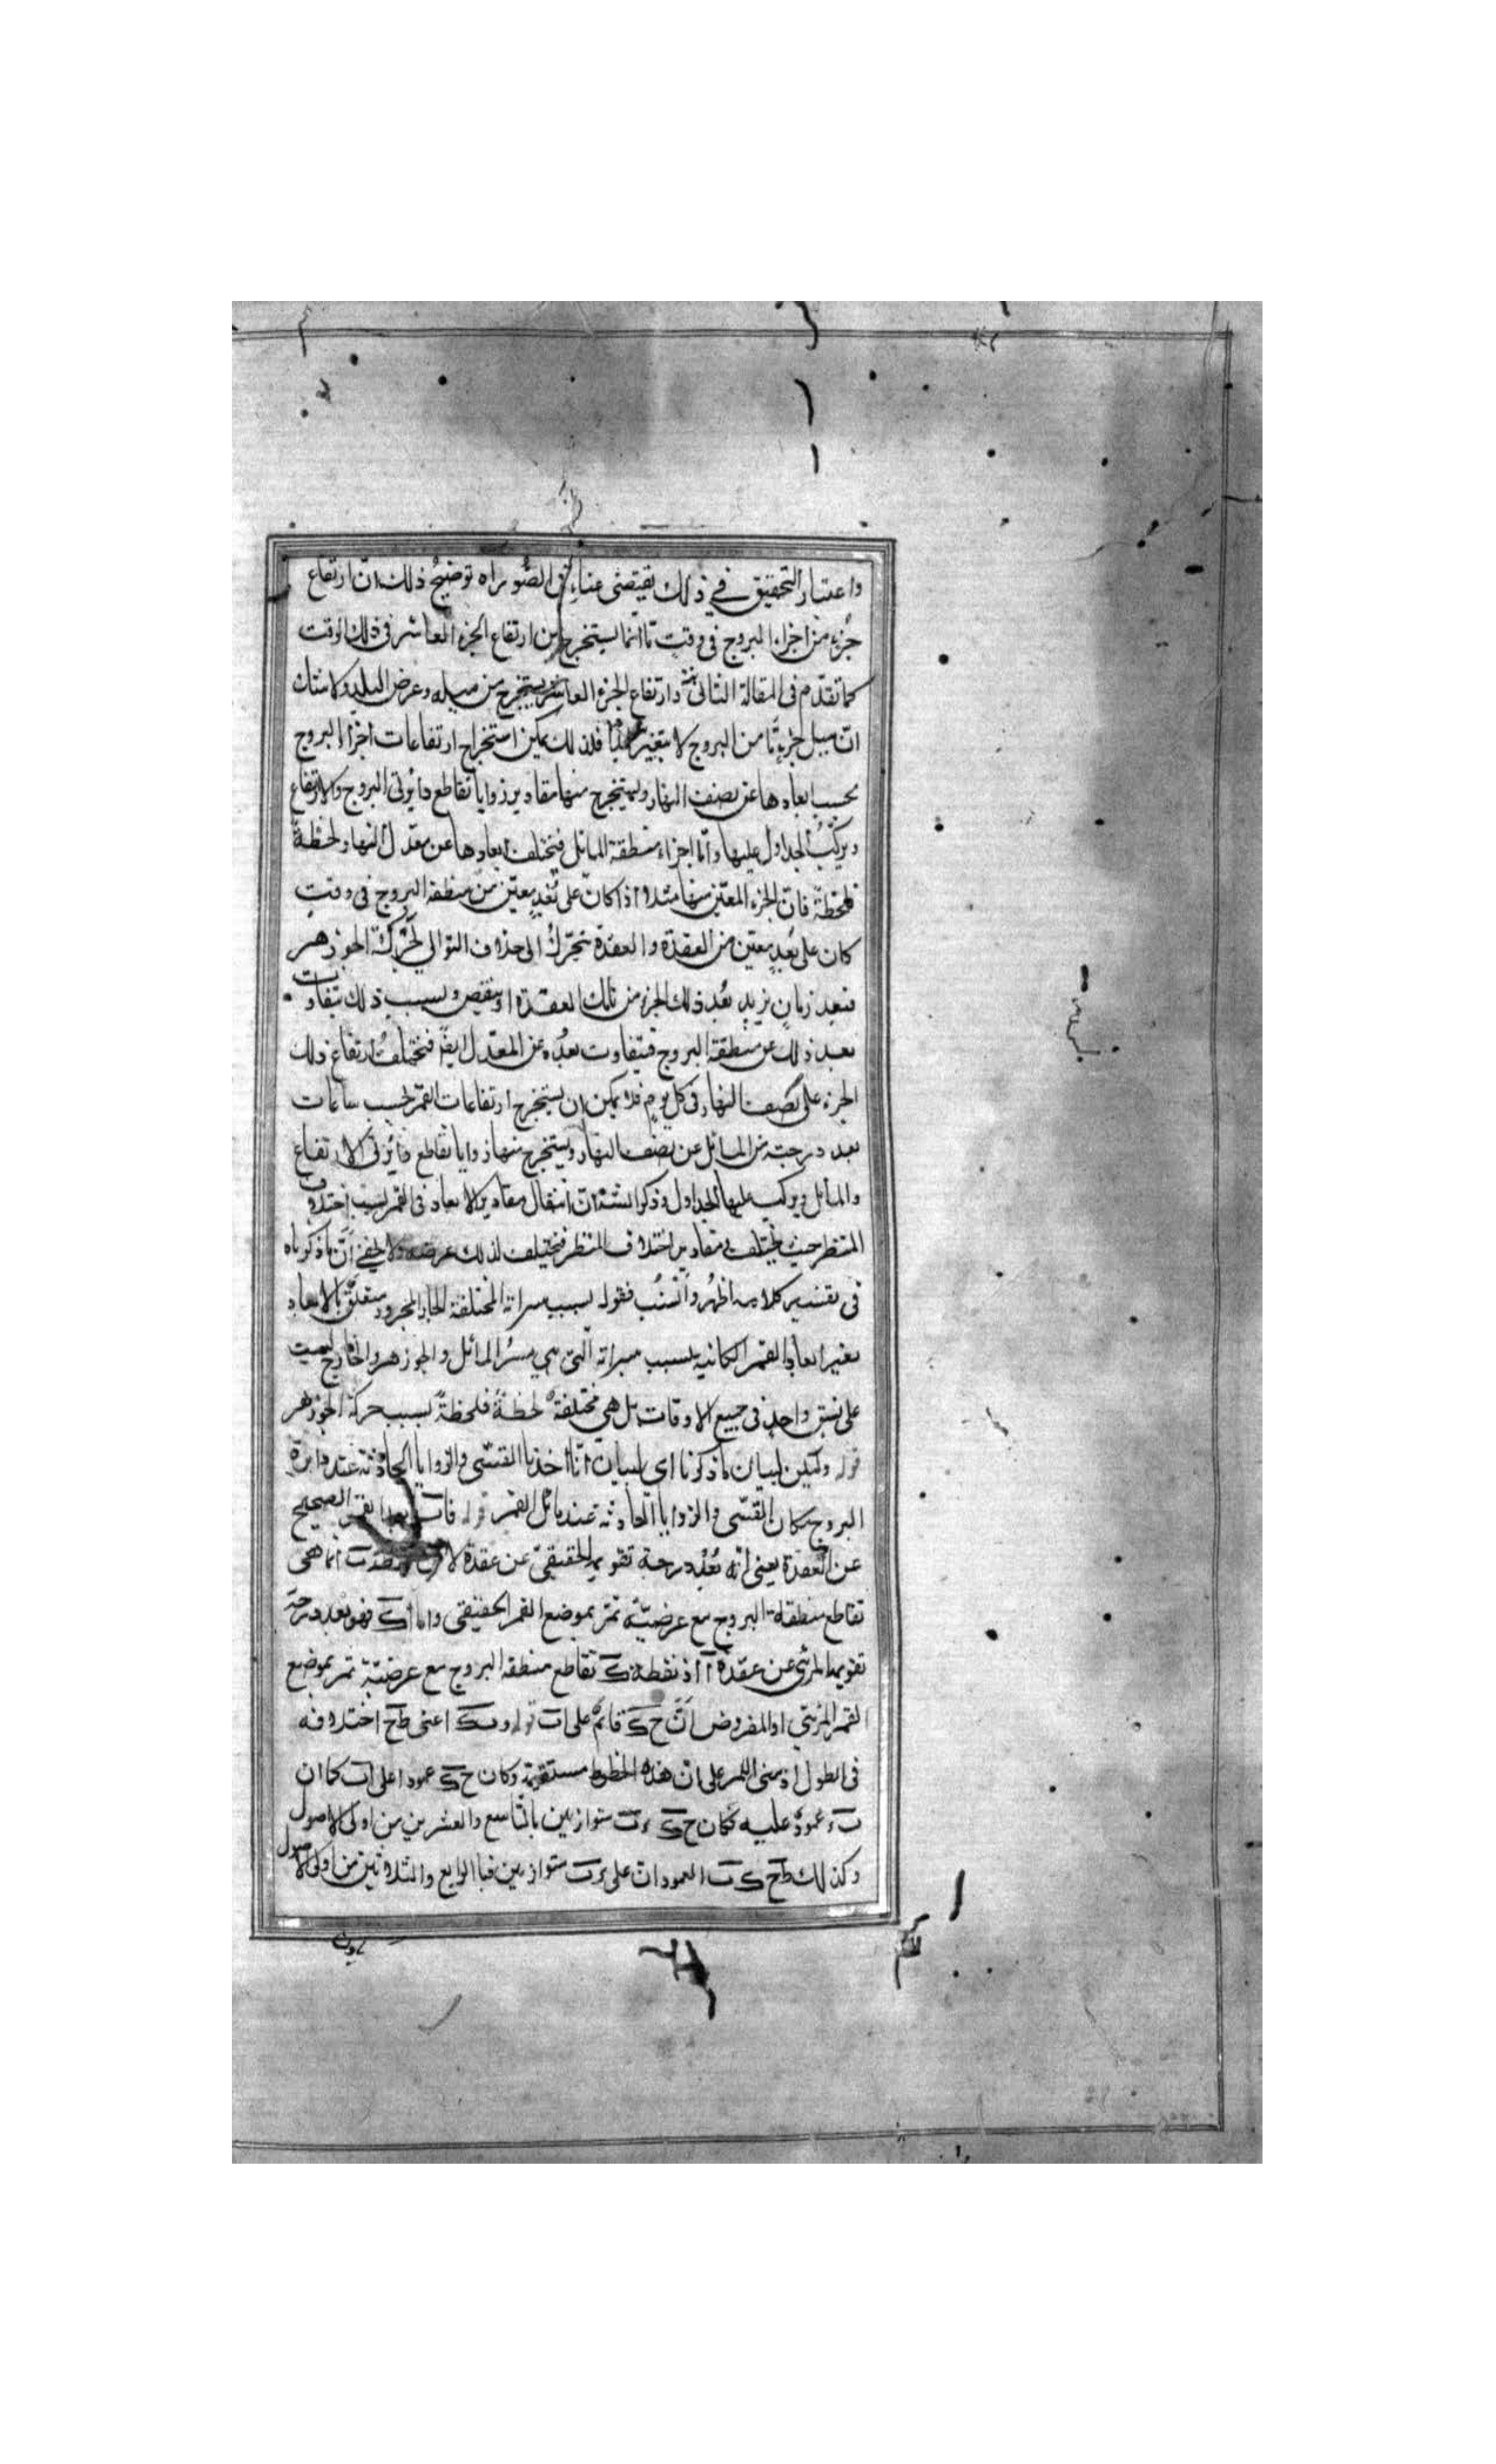 واعتبار التحقيق في ذلك يقتضى عناء في الصور اه توضيح ذلك ان ارتفاع
جزء من اجزاء البروج فى وقت ما انما يستخرج من ارتفاع الجزء العاشر فى ذلك الوقت
كما تقدم فى المقالة الثانى وارتفاع الجزء العاشر يستخرج من ميله وعرض البلد ولا شك
ان ميل جزء ما من البروج لا يتغير فلذلك يمكن استخراج ارتفاعات اجزاء البروج
بحسب ابعادها عن نصف النهار ويستخرج منها مقادير زوايا تقاطع دائرتى البروج والارتفاع
ويركب الجداول عليها واما اجزاء منطقة المائل فيختلف ابعادها عن معدل النهار لحظة
فلحظة فان الجزء المعين منها مثلا اذا كان على بعد معين من منطقة البروج فى وقت
كان على بعد معين من العقدة والعقدة تتحرك الى خلاف التوالى لحركة الجوزهر
فبعد زمان يزيد بعد ذلك الجزء من تلك العقدة او ينقص وبسبب ذلك يتفاوت
بعد ذلك عن منطقة البروج فيتفاوت بعده عن المعدل ايضا فيختلف ارتفاع ذلك
الجزء على نصف النهار فى كل يوم فلا يمكن ان يستخرج ارتفاعات القمر بحسب ساعات
بعد درجته من المائل عن نصف النهار ويستخرج منها زوايا تقاطع دائرتى الارتفاع
والمائل ويركب عليها الجداول وذكر ان انتقال مقادير الابعاد فى القمر بسبب اختلاف
المنظر حيث يختلف مقادير اختلاف المنظر فيختلف لذلك عرضه ولا يخفى ان ما ذكرناه
فى تفسير كلامه اظهر وانسب فقوله بسبب مسيراته المختلفة الجار والمجرور متعلق بالابعاد
يعنى ابعاد القمر الكائنة بسبب مسيراته التى هى مسير المائل والجوزهر والخارج ليست
على نسق واحد فى جميع الاوقات بل هى مختلفة لحظة فلحظة بسبب حركة الجوزهر
قوله وليكن لبيان ما ذكرنا اى لبيان انا اخذنا القسى والزوايا الحادثة عند دائرة
البروج مكان القسى والزوايا الحادثة عند مائل القمر قوله فاب بعد القمر الصحيح
عن العقدة يعنى انه بعد درجة تقويمه الحقيقى عن عقدة لان نقطة ب انما هى
تقاطع منطقة البروج مع عرضية تمر بموضع القمر الحقيقى واما اك فهو بعد درجة
تقويمه المرئى عن عقدة آ اذ نقطة ك تقاطع منطقة البروج مع عرضية تمر بموضع
القمر المرئى اذ المفروض ان ح ك قائم على اب قوله وب ك اعنى ط ح اختلافه
فى الطول اذ مبنى الامر على ان هذه الخطوط مستقيمة وكان ح ك عمودا على اب كما ان
ب ء عمود عليه فكان ح ك ء ب متوازيين بالتاسع والعشرين من اولى الاصول
وكذلك ط ح ك ب العمودان على ء ب متوازيين فبالرابع والثلاثين من اولى الاصول